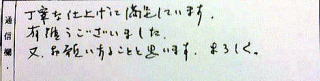 通信欄
丁寧な仕上げに満足しています。
有難うございました。
又、お願いすることと思います。よろしく。